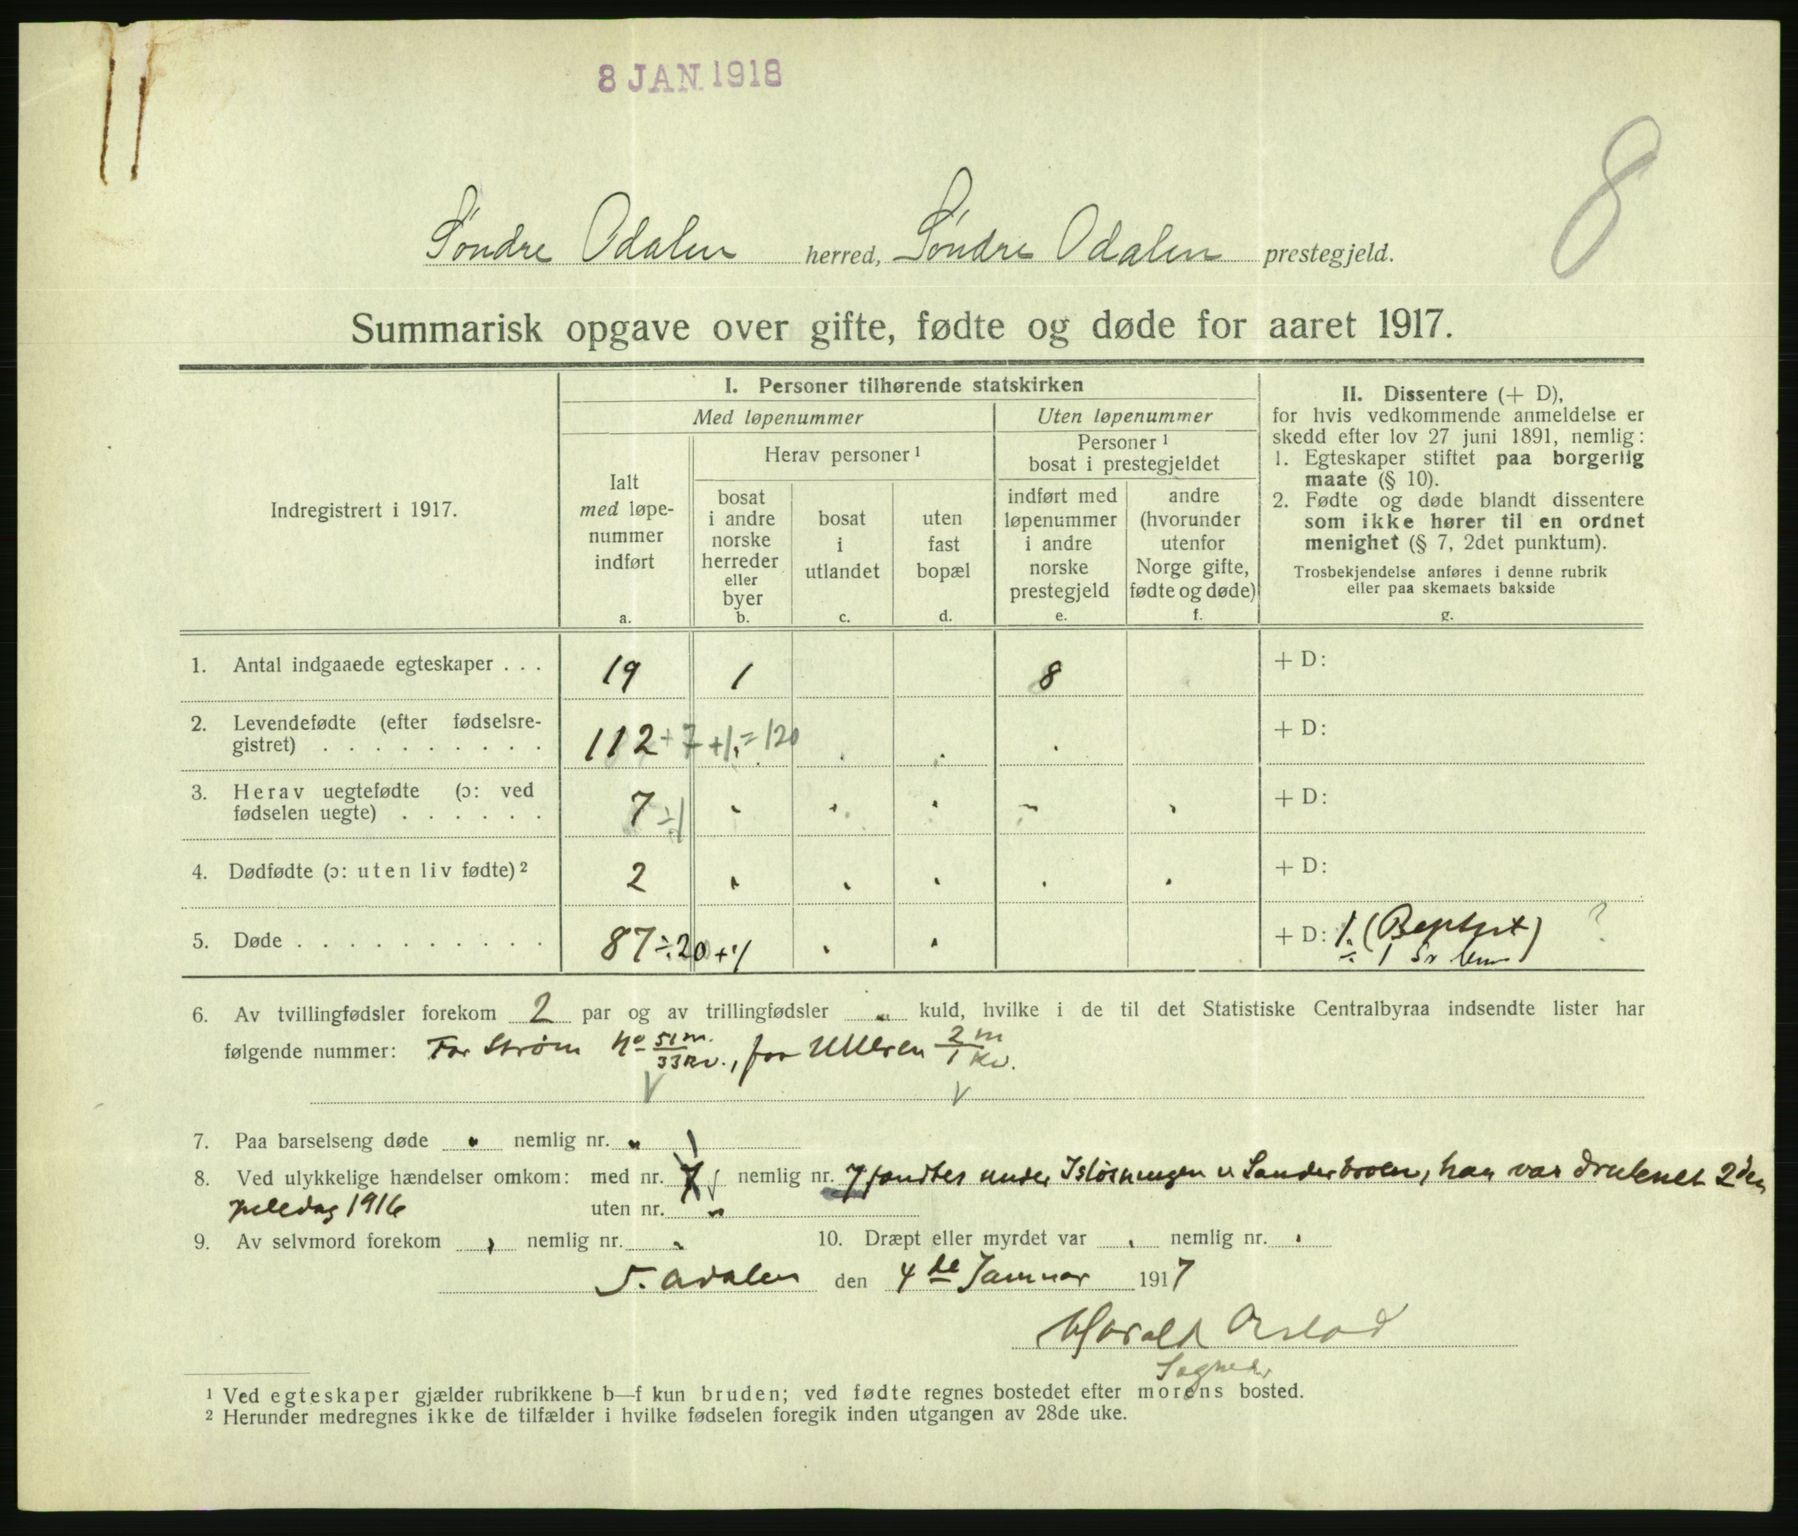 8 JAN. 1918
8
Søndre Odalen herred, Søndre Odalen prestegjeld.
Summarisk opgave over gifte, fødte og døde for aaret 1917.
Indregistrert i 1917.
I. Personer tilhørende statskirken
Med løpenummer
Uten løpenummer
Ialt
med løpe-
nummer
indført
a.
Herav personer ¹
bosat
i andre
norske
herreder
eller
byer
b.
bosat
i
utlandet
c.
uten
fast
bopæl
d.
Personer ¹
bosat i prestegjeldet
indført med
løpenummer
i andre
norske
prestegjeld
e.
andre
(hvorunder
utenfor
Norge gifte,
fødte og døde)
f.
II. Dissentere (+ D),
for hvis vedkommende anmeldelse er
skedd efter lov 27 juni 1891, nemlig:
1. Egteskaper stiftet paa borgerlig
maate (§ 10).
2. Fødte og døde blandt dissentere
som ikke hører til en ordnet
menighet (§ 7, 2det punktum).
Trosbekjendelse anføres i denne rubrik
eller paa skemaets bakside
g.
1. Antal indgaaede egteskaper . . . 19 1 8 + D:
2. Levendefødte (efter fødselsre-
gistret) . . . . . . . . . 112 + 7 + 1 = 120 + D:
3. Herav uegtefødte (ɔ: ved
fødselen uegte) . . . . . . 7 ÷ 1 + D:
4. Dødfødte (ɔ: uten liv fødte) ² 2 + D:
5. Døde . . . . . . . . . . 87 ÷ 20 + 1 + D: 1. (Baptist) ?
÷ 1
6. Av tvillingfødsler forekom 2 par og av trillingfødsler " kuld, hvilke i de til det Statistiske Centralbyraa indsendte lister har
følgende nummer: For Strøm No 51 m. / 33 Kv., for Ulleren 2 m / 1 Kv.
7. Paa barselseng døde " nemlig nr. "
8. Ved ulykkelige hændelser omkom: med nr. 1 nemlig nr. 7 fandtes under Isløsningen v Sanderbroen, han var druknet 2den
juledag 1916 uten nr. "
9. Av selvmord forekom , nemlig nr. " 10. Dræpt eller myrdet var . nemlig nr. .
S. Odalen den 4de Januar 1917
Harald
¹ Ved egteskaper gjælder rubrikkene b—f kun bruden; ved fødte regnes bostedet efter morens bosted.
² Herunder medregnes ikke de tilfælder i hvilke fødselen foregik inden utgangen av 28de uke.